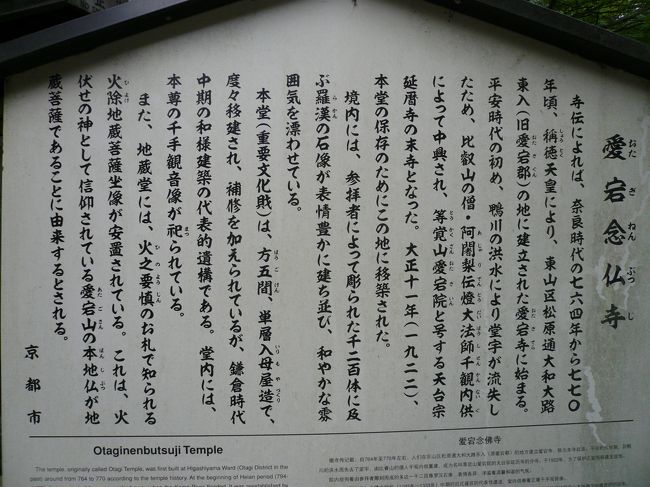 愛宕念仏寺
寺伝によれば、奈良時代の七六四年から七七〇
年頃、稱徳天皇により、東山区松原通大和大路
東入(旧愛宕郡)の地に建立された愛宕寺に始まる。
平安時代の初め、鴨川の洪水により堂宇が流失し
たため、比叡山の僧・阿闍梨伝燈大法師千観内供
によって中興され、等覚山愛宕院と号する天台宗
延暦寺の末寺となった。大正十一年(一九二二)、
本堂の保存のためにこの地に移築された。
境内には、参拝者によって彫られた千二百体に及
ぶ羅漢の石像が表情豊かに建ち並び、和やかな雰
囲気を漂わせている。
本堂(重要文化財)は、方五間、単層入母屋造で、
度々移建され、補修を加えられているが、鎌倉時代
中期の和様建築の代表的遺構である。堂内には、
本尊の千手観音像が祀られている。
また、地蔵堂には、火之要慎のお札で知られる
火除地蔵菩薩坐像が安置されている。これは、火
伏せの神として信仰されている愛宕山の本地仏が地
蔵菩薩であることに由来するとされる。
京都市
Otaginenbutsuji Temple
The temple, originally called Otagi Temple, was first built at Higashiyama Ward (Otagi District in the
past) around from 764 to 770 according to the temple history. At the beginning of Heian period (794-
爱宕念佛寺